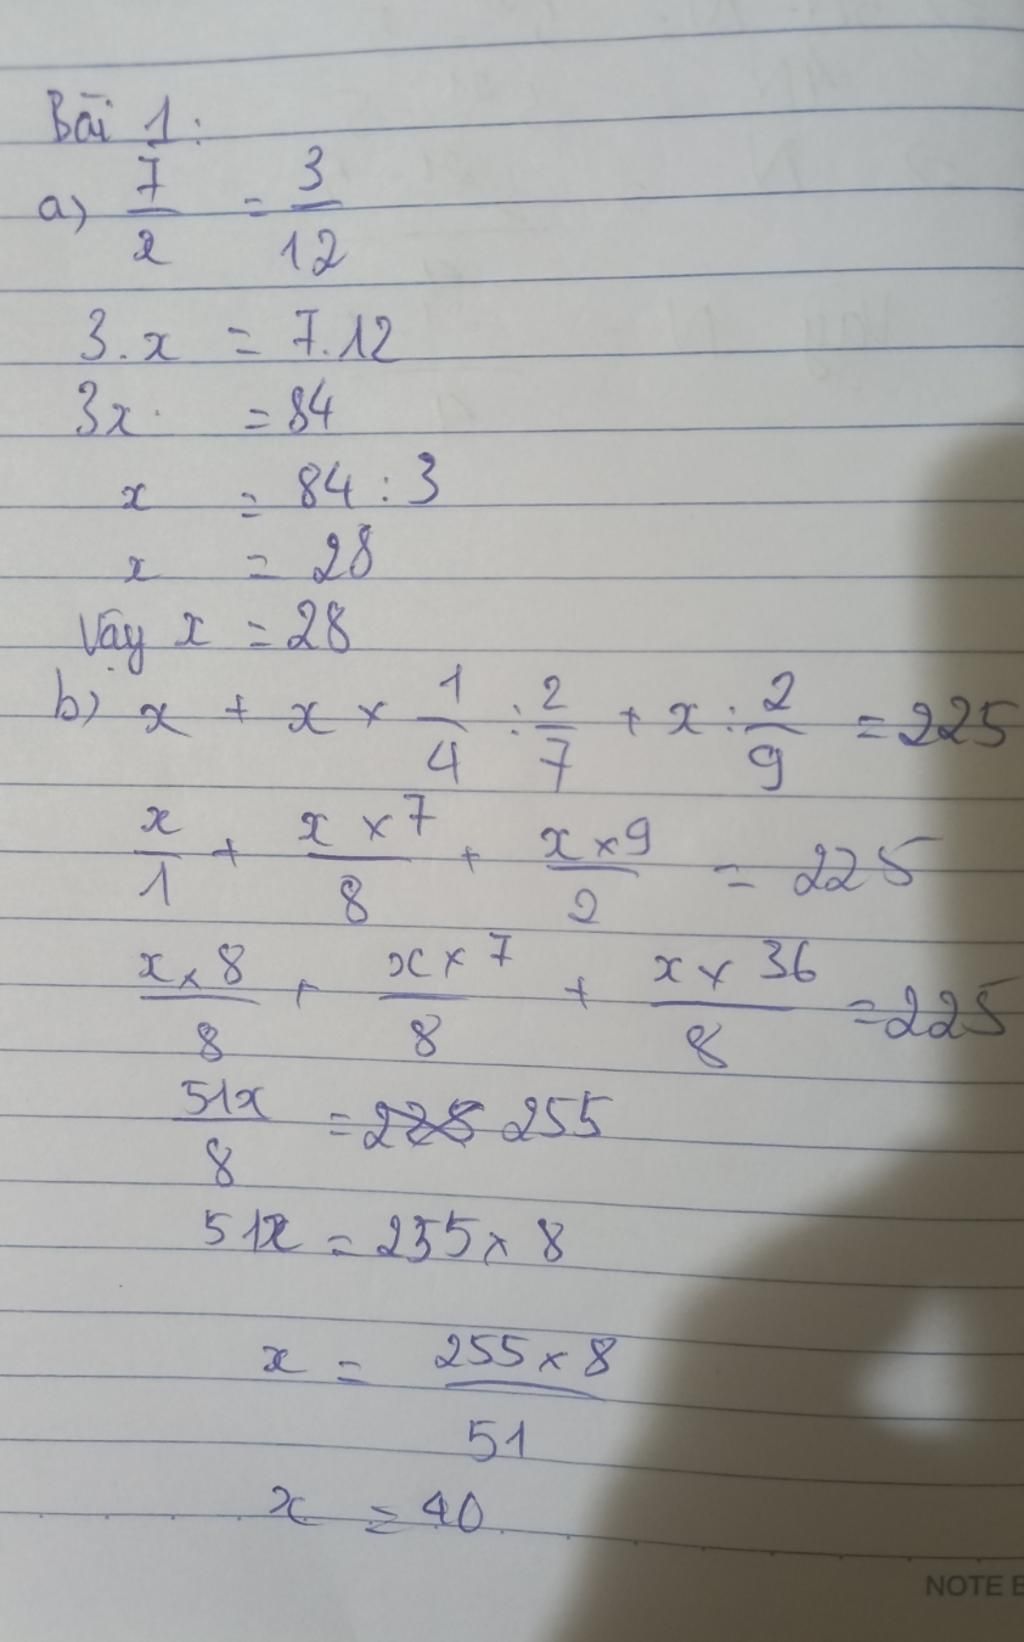 Bài 1:
a) 7/x = 3/12
3.x = 7.12
3x = 84
x = 84 : 3
x = 28
Vậy x = 28
b) x + x × 1/4 : 2/7 + x : 2/9 = 225
x/1 + x × 7/8 + x × 9/2 = 225
x × 8/8 + x × 7/8 + x × 36/8 = 225
51x/8 = 255
51x = 255 × 8
x = 255 × 8/51
x = 40
NOTE B